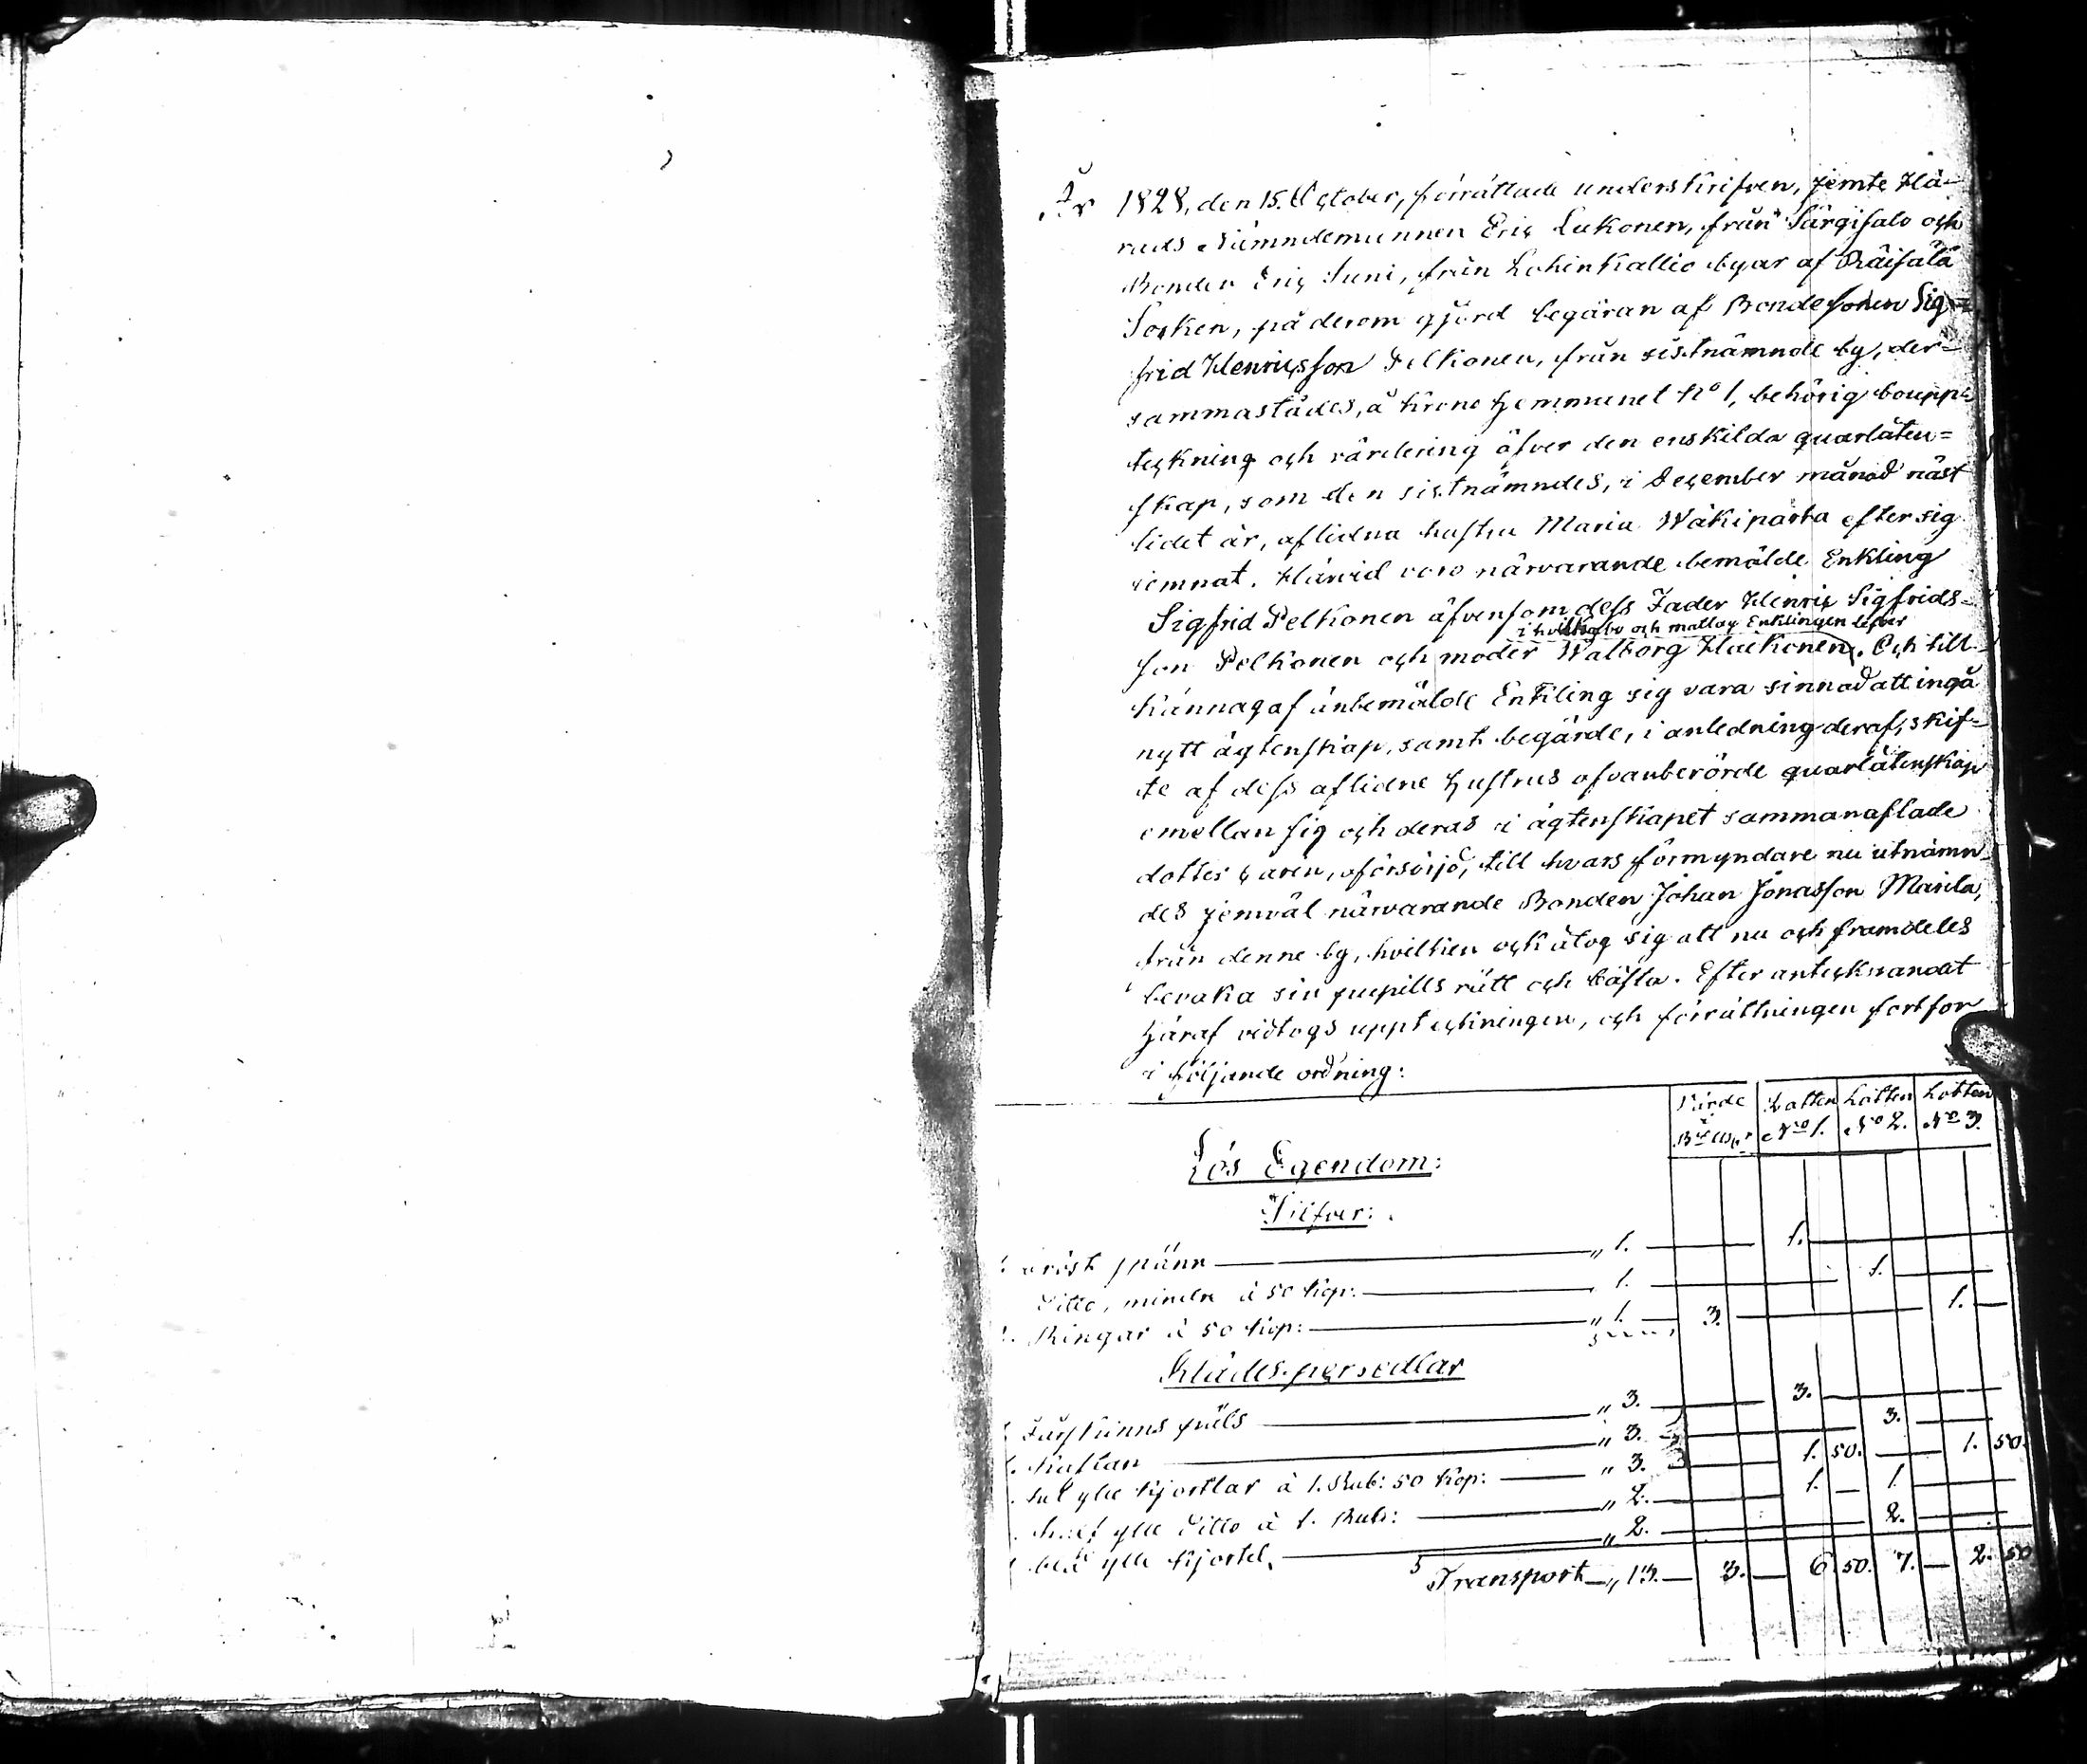 År 1828, den 15. October, förrättade underskrifven, jemte Hä-
rads Nämndemannen Eric Lukonen, från Särgisalo och
Bonden Eric Suni, från Lohinkallio byar af Räisälä
Socken, på derom gjord begäran af Bondesonen Sig-
frid Henricsson Pelkonen, från sistnämnde by, der-
sammastädes, å Krono hemmanet No 1, behörig boupp-
teckning och värdering öfver den enskilda quarlåten=
skap, som den sistnämndes, i December månad näst
lidet år, aflidna hustru Maria Wäkiparta efter sig
lemnat. Härvid voro närvarande bemälde Enkling
Sigfrid Pelkonen äfvensom dess Fader Henric Sigfrids-
i hvilkas bo och matlag Enklingen lefver
son Pelkonen och moder Walborg Haikonen. Och till-
kännagaf änbemälde Enkling sig vara sinnad att ingå
nytt ägtenskap, samt begärde, i anledning deraf, skif-
te af dess aflidne hustrus ofvanberörde quarlåtenskap
emellan sig och deras i ägtenskapet sammanaflade
dotter Carin, oförsörjd, till hvars förmyndare nu utnämn-
des jemväl närvarande Bonden Johan Jonasson Marila,
från denne by, hvilken ock åtog sig att nu och framdeles
bevaka sin pupills rätt och bästa. Efter antecknandet
häraf vidtogs uppteckningen, och förrättningen fortfor
i följande ordning:
Värde Lotten Lotten Lotten
No 1. No 2. No 3.
Lös Egendom:
Silfver:
1. bröst spänn „ 1. 1.
Ditto, mindre à 50 Kop: 1. 1.
Ringar à 50 Kop: „ 1. 3. 1.
Klädespersedlar
1. Fårskinns päls „ 3. 3.
1. Kaftan „ 3. 3.
kjortlar à 1. Rub: 50 Kop: „ 3. 1. 50. 1. 50.
half ylle Ditto à 1. Rub: „ 2. 1. 1.
ylle kjortel „ 2. 2.
Transport „ 13. 3. 6. 50. 7. 2. 50